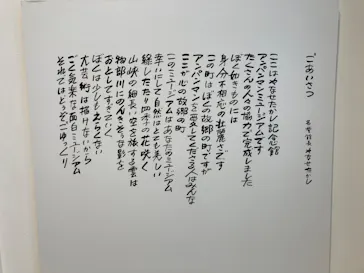 ごあいさつ
ここはやなせたかし記念館
アンパンマンミュージアムです
たくさんの人々の協力で完成しました
ぼく如きものには
身分不相応の壮麗さです
この町はぼくの故郷の町ですが
アンパンマンを愛してくださる人はみんな
ここが心の故郷の町
このミュージアムはあなたのミュージアム
幸いにして自然はとても美しい
緑したたり四季の花咲く
山峡の細長い空を旅する雲は
物部川にのんきそうな影を
おとしてすぎていく
ぼくは少しもえらくない
尤も芸術は描けないから
ごく気楽な面白ミュージアム
それではどうぞごゆっくり